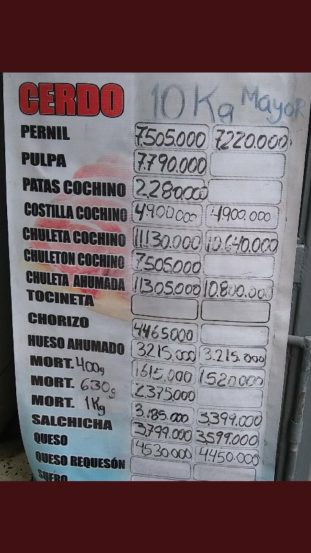 CERDO 10 Kg Mayor
PERNIL 7.505.000 7220.000
PULPA 7.790.000
PATAS COCHINO 2.280000
COSTILLA COCHINO 4900000 4900.000
CHULETA COCHINO 11.130.000 10.640.000
CHULETON COCHINO 7505.000
CHULETA AHUMADA 11305.000 10.800.000
TOCINETA
CHORIZO 4465000
HUESO AHUMADO 3215,000 3.215.000
MORT. 400g 1615.000 1520.000
MORT. 630g 2375000
MORT. 1Kg 3.185.000 3.399.000
SALCHICHA 3799.000 3599.000
QUESO 4530000 4.450.000
QUESO REQUESÓN
SUERO